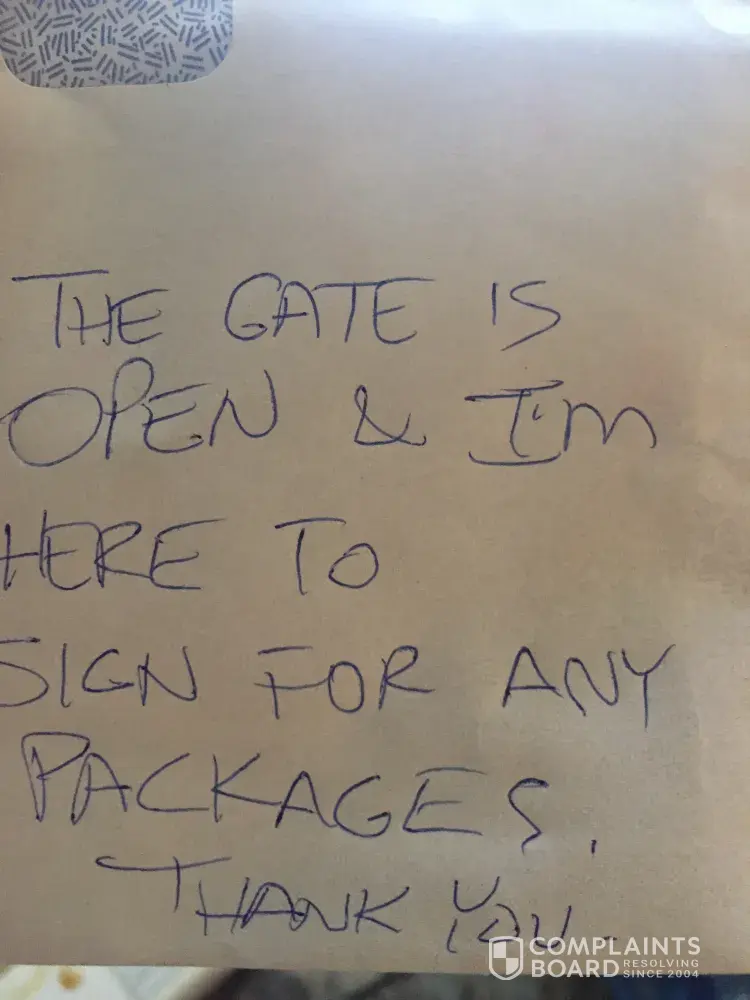 THE GATE IS
OPEN & I'm
HERE TO
SIGN FOR ANY
PACKAGES.
THANK YOU.
COMPLAINTS
BOARD RESOLVING
SINCE 2004